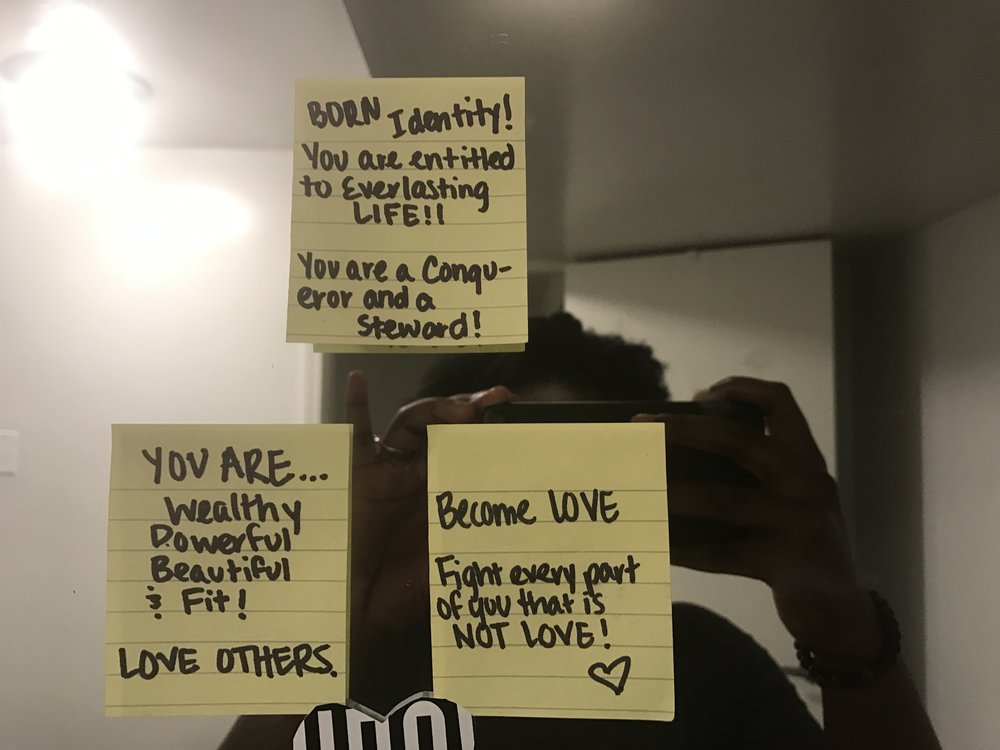 BORN Identity!
You are entitled
to Everlasting
LIFE!!
You are a Conqu-
eror and a
Steward!
YOU ARE...
Wealthy
Powerful
Beautiful
& Fit!
LOVE OTHERS.
Become LOVE
Fight every part
of you that is
NOT LOVE!